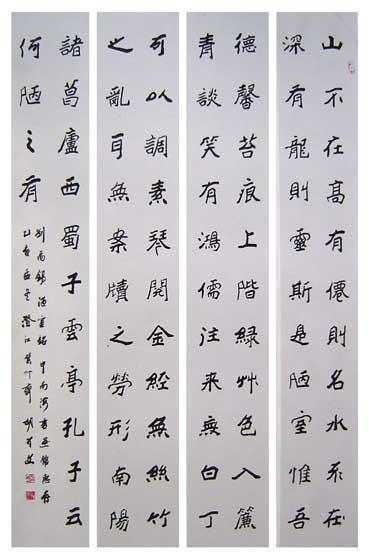 山不在高有僊則名水不在
深有龍則靈斯是陋室惟吾
德馨苔痕上階綠艸色入簾
青談笑有鴻儒往来無白丁
可以調素琴閱金經無絲竹
之亂耳無案牘之勞形南陽
諸葛廬西蜀子雲亭孔子云
何陋之有
劉禹錫陋室銘